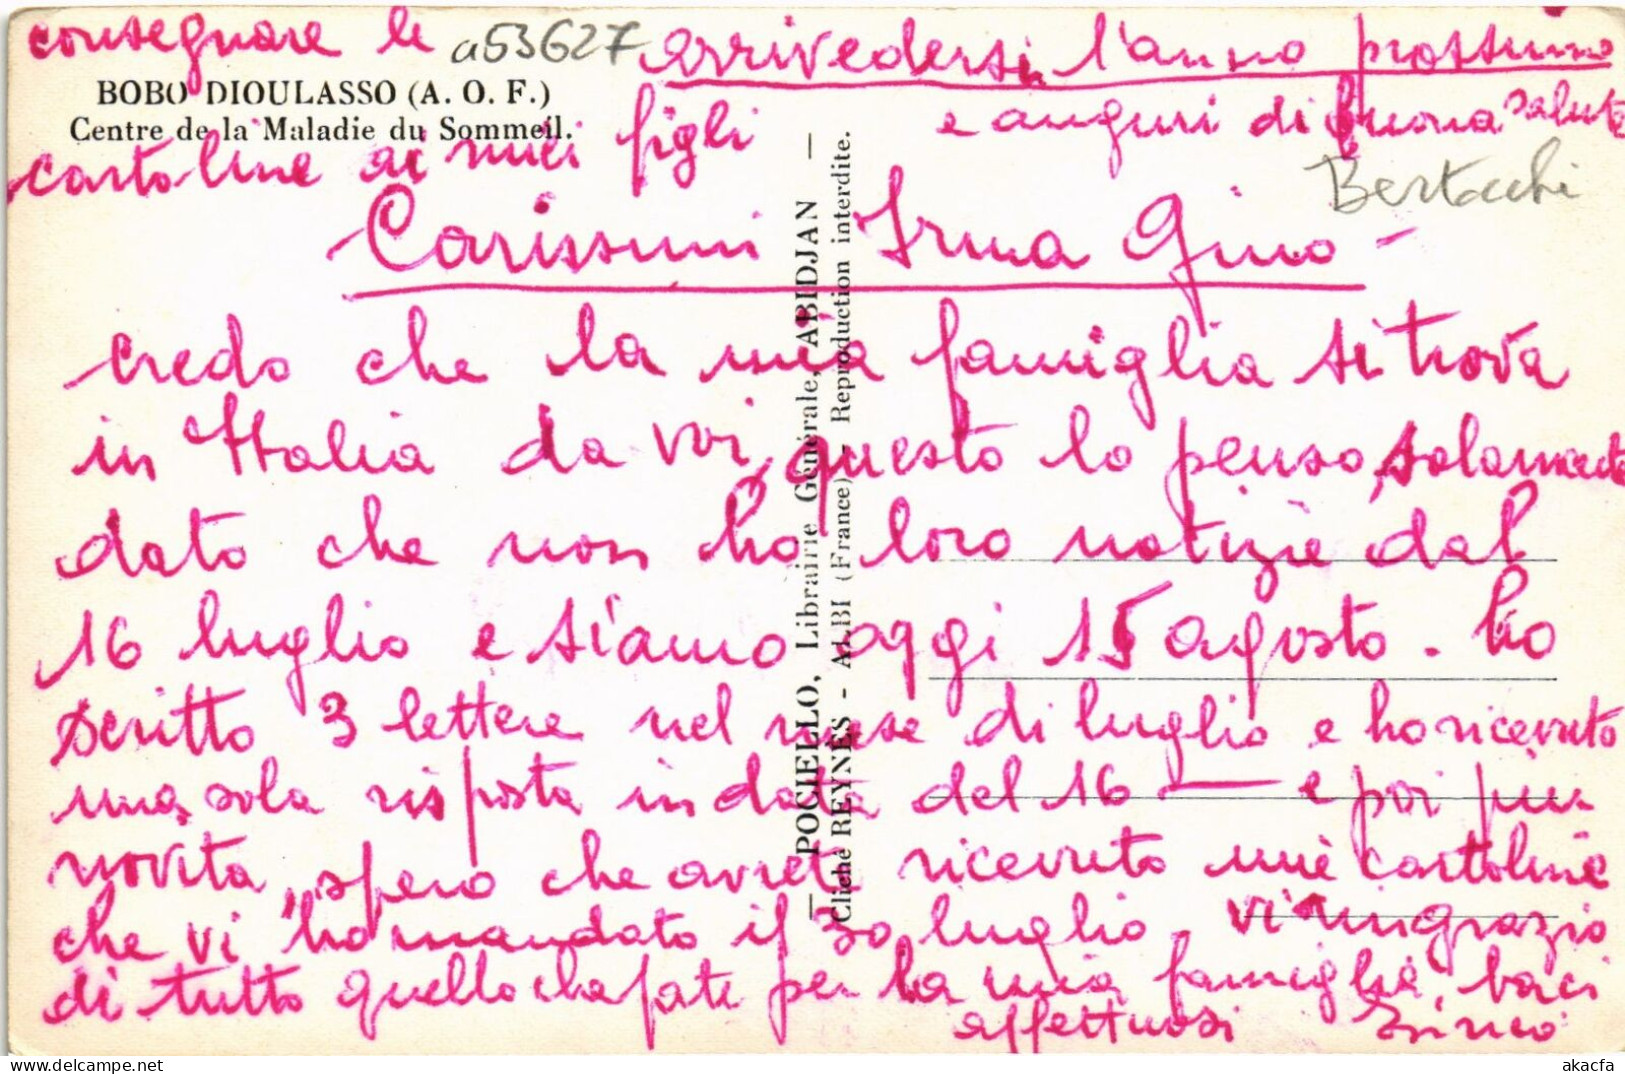 consegnare le a53627 arrivedersi l'anno prossimo
BOBO DIOULASSO (A. O. F.)
Centre de la Maladie du Sommeil.
e auguri di buona salute
cartoline ai miei figli
Bertacchi
Carissimi Irma Gino -
credo che la mia famiglia si trova
in Italia da voi, questo lo penso, solamente
dato che non ho loro notizie dal
16 luglio e siamo oggi 15 agosto - ho
scritto 3 lettere nel mese di luglio e ho ricevuto
una sola risposta in data del 16 — e poi più
novita, spero che avrete ricevuto mie cartoline
che vi ho mandato il 30 luglio - vi ringrazio
di tutto quello che fate per la mia famiglia, baci
affettuosi
— POCIELLO, Librairie Générale, ABIDJAN —
Cliché REYNES - ALBI (France) - Reproduction interdite.
akacfa